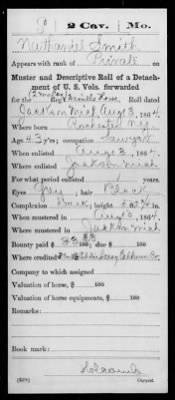 S 2 Cav. Mo.
Nathaniel Smith
Appears with rank of Private on
Muster and Descriptive Roll of a Detach-
ment of U. S. Vols. forwarded
for the Reg't Roll dated
Jackson Mich Aug 3, 1864
Where born N.Y.
Age 43 y'rs; occupation Sawyer
When enlisted Aug 3, 1864
Where enlisted Jackson Mich
For what period enlisted 1 years.
Eyes Gray; hair Black
Complexion; height ft. in.
When mustered in Aug 3, 1864
Where mustered in Jackson Mich
Bounty paid $ 33 33/100; due $ 100
Where credited Calhoun Co
Company to which assigned
Valuation of horse, $ 100
Valuation of horse equipments, $ 100
Remarks:
Book mark:
Holcomb
(339) Copyist.